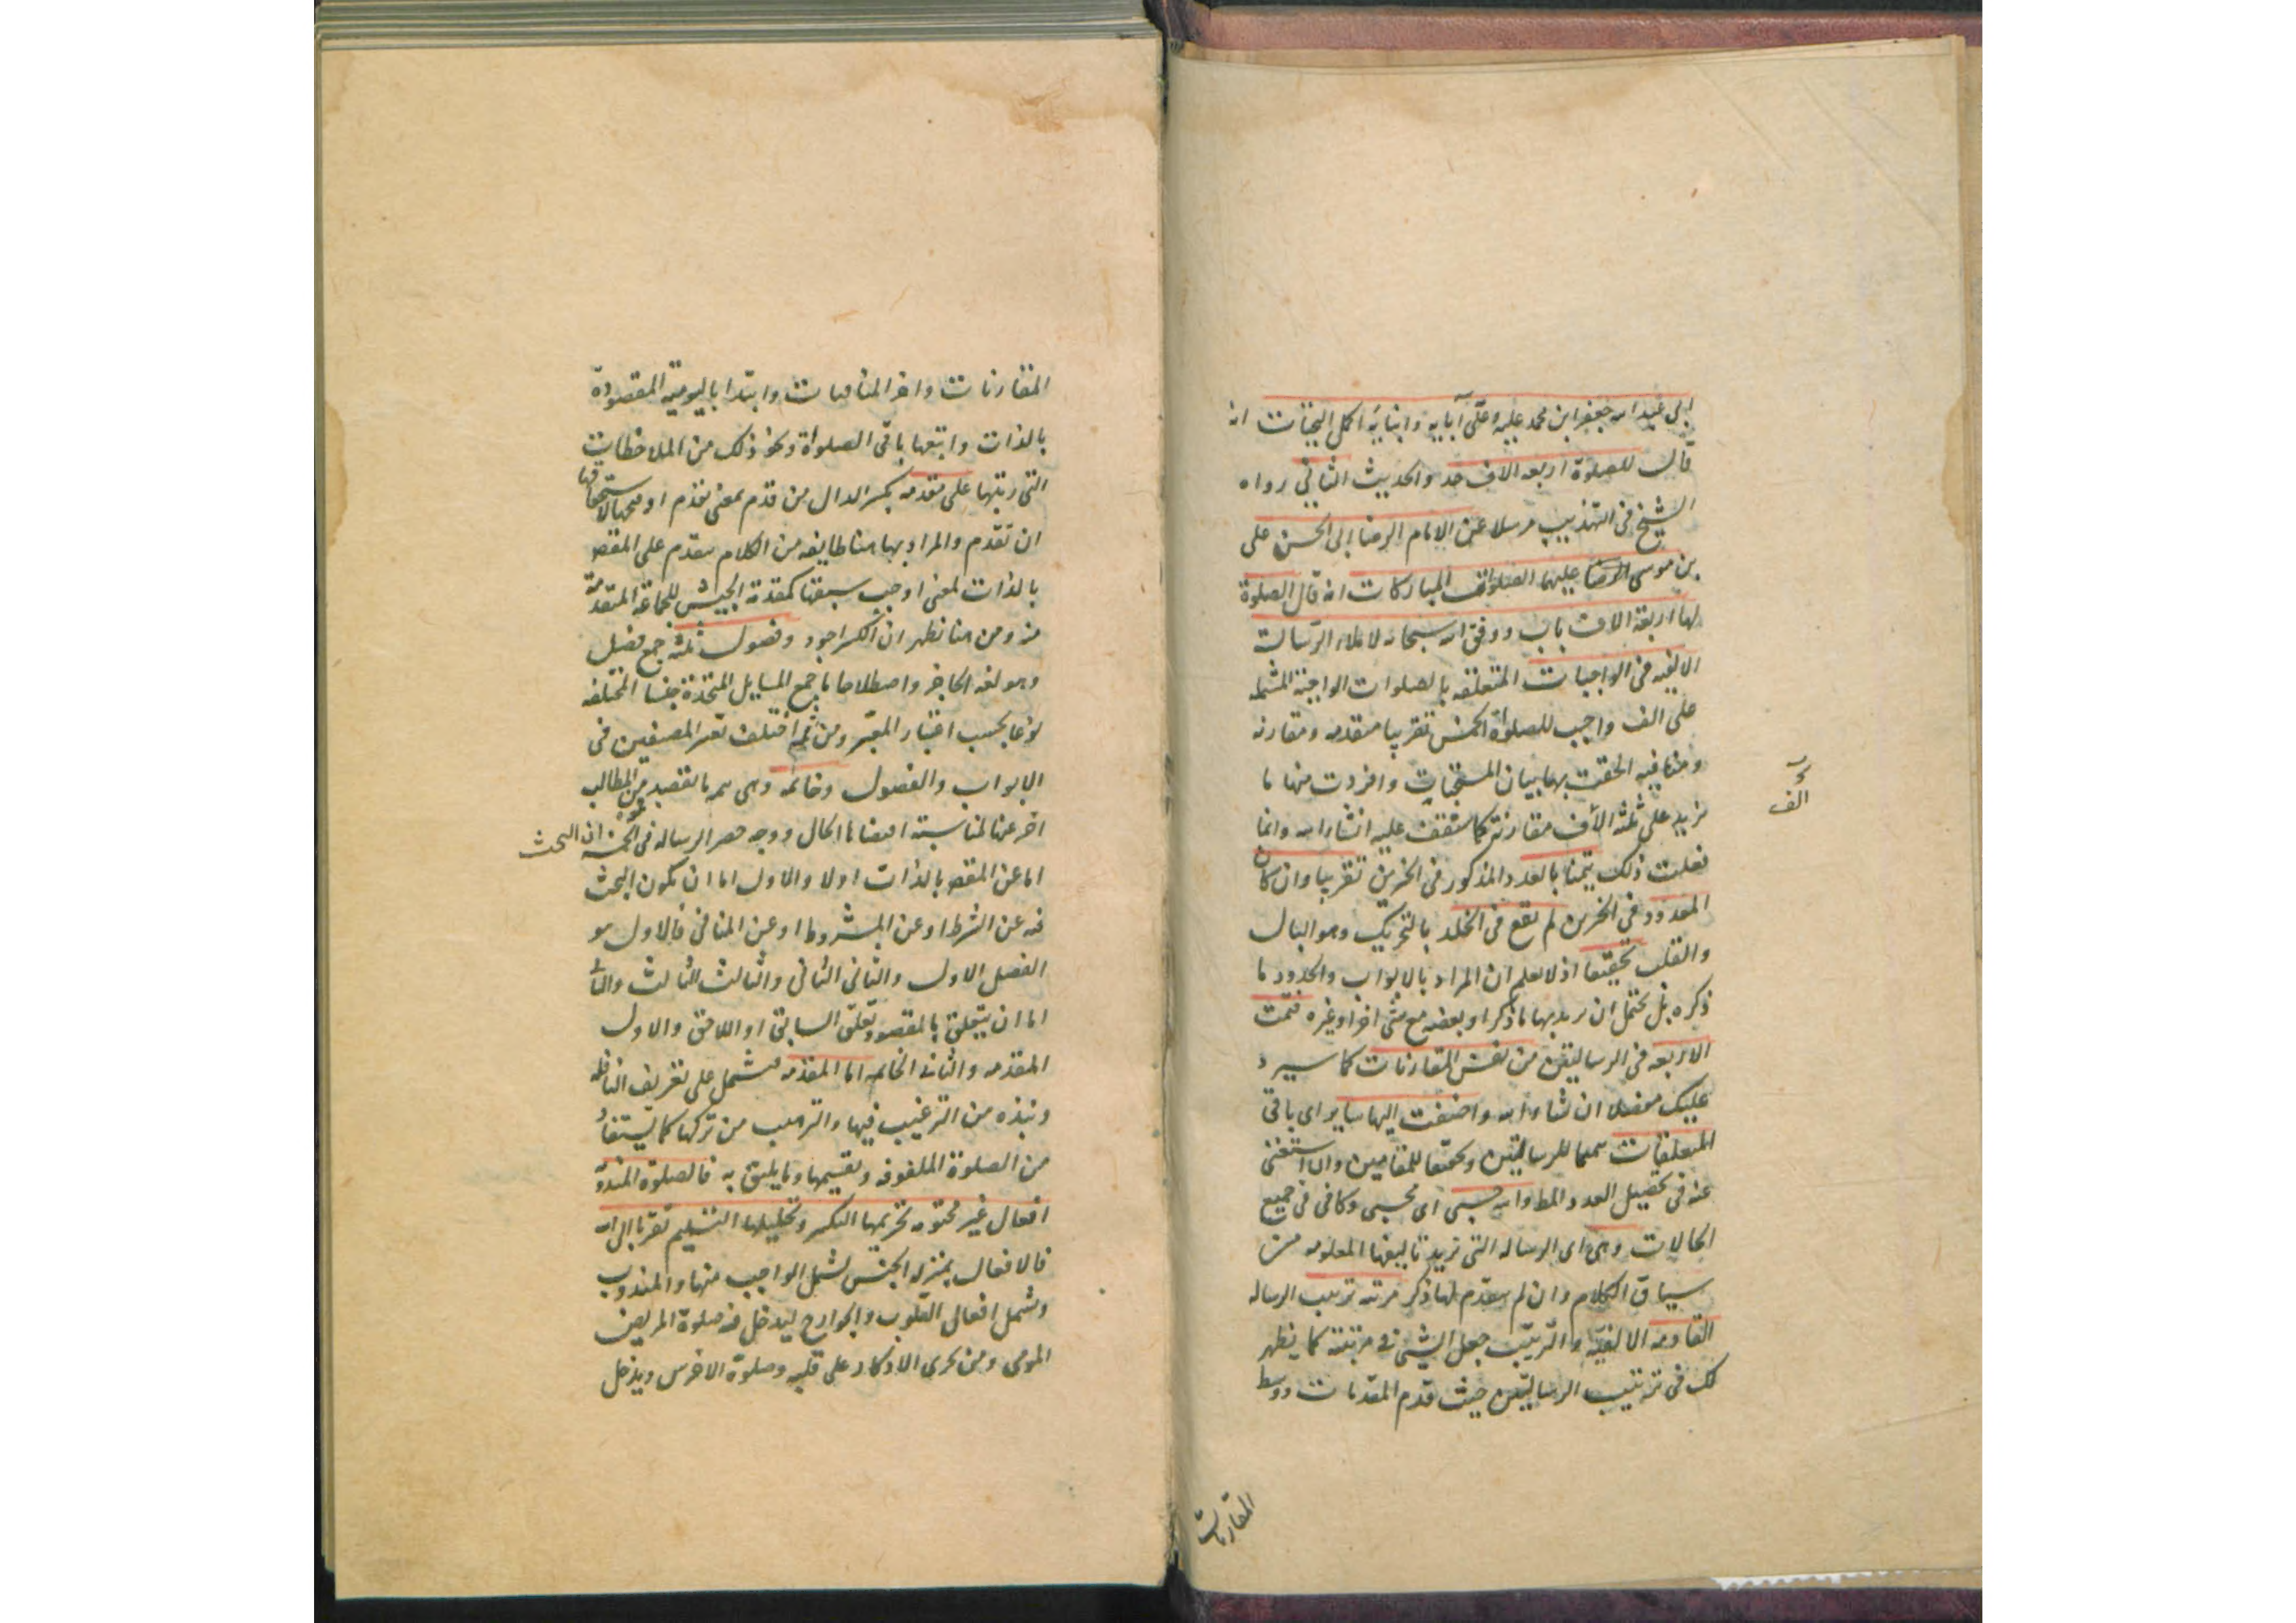 ابى عبد الله جعفر ابن محمد عليه وعلى آبايه وابنايه اكمل التحيات انه
قال للصلوة اربعه الاف حد والحديث الثانى رواه
الشيخ فى التهذيب مرسلا عن الامام الرضا ابى الحسن على
بن موسى الرضا عليهما الصلوات المباركات انه قال الصلوة
لها اربعة الاف باب ووفق الله سبحانه لاملاء الرسالة
الالفيه فى الواجبات المتعلقه بالصلوات الواجبة المشتمله
على الف واجب للصلواة الخمس تقريبا متقدمه ومقارنه
ومنافيه الحقت بها بيان المستحبات وافردت منها ما
يزيد على ثلثه آلاف مقارنة كما ستقف عليه انشاء الله وانما
الف
فعلت ذلك تيمنا بالعدد المذكور فى الخبرين تقريبا وان كان
المعدود فى الخبرين لم يقع فى الخلد بالتحريك وهو البال
والقلب تحقيقا اذ لا يعلم ان المراد بالابواب والحدود ما
ذكره بل يحتمل ان يريد بهما ما ذكر او بعضه مع شئ اخر او غيره فتمت
الاربعه فى الرسالتين من نفس المقارنات كما سيرد
عليك مفصلا ان شاء الله واضفت اليها ساير اى باقى
المتعلقات تتميما للرسالتين وتحقيقا للمقامين والا استغنى
عنه فى تحصيل العدد المط والله حسبى اى محسبى وكافى فى جميع
الحالات وهى اى الرساله التى نريد تاليفها المعلومه من
سياق الكلام وان لم يتقدم لها ذكر مرتبه ترتيب الرساله
القادمه الالفيه والترتيب جعل الشئ فى مرتبته كما يظهر
لك فى ترتيب الرسالتين حيث قدم المقدمات ووسط
المقارنات
المقارنات واخر المنافيات وابتدا باليومية المقصودة
بالذات واتبعها باقى الصلواة ونحو ذلك من الملاحظات
التى رتبتها على مقدمه بكسر الدال من قدم بمعنى تقدم او فتحها لاستحقاقها
ان تقدم والمراد بها هنا طايفه من الكلام يتقدم على المقص
بالذات لمعنى اوجب سبقها كمقدمة الجيش للجماعة المتقدمة
منه ومن هنا يظهر ان الكسر اجود وفصول ثلثه جمع فصل
وهو لغه الحاجز واصطلاحا جامع المسايل المتحدة جنسا المختلفه
نوعا بحسب اعتبار المعتبر ومن ثمه اختلف تعبير المصنفين فى
الابواب والفصول وخاتمه وهى ما يقصد من المطالب
اخر عنها لمناسبته اقتضاها الحال ووجه حصر الرساله فى الخمسة ان البحث
اما عن المقص بالذات اولا والاول اما ان يكون البحث
فيه عن الشرط او عن المشروط او عن المنافى فالاول هو
الفصل الاول والثانى الثانى والثالث الثالث والثانى
اما ان يتعلق بالمقصود تعلق السابق او اللاحق والاول
المقدمه والثانى الخاتمه اما المقدمه فتشتمل على تعريف النافله
ونبذه من الترغيب فيها والترهيب من تركها كما يستفاد
من الصلوة الملفوفه وتقسيمها وما يليق به فالصلوة المندوبة
افعال غير محتومه تحريمها التكبير وتحليلها التسليم تقربا الى الله
فالافعال بمنزلة الجنس تشمل الواجب منها والمندوب
وتشمل افعال القلوب والجوارح ليدخل فيه صلوة المريض
المومى ومن يجرى الاذكار على قلبه وصلوة الاخرس ويدخل